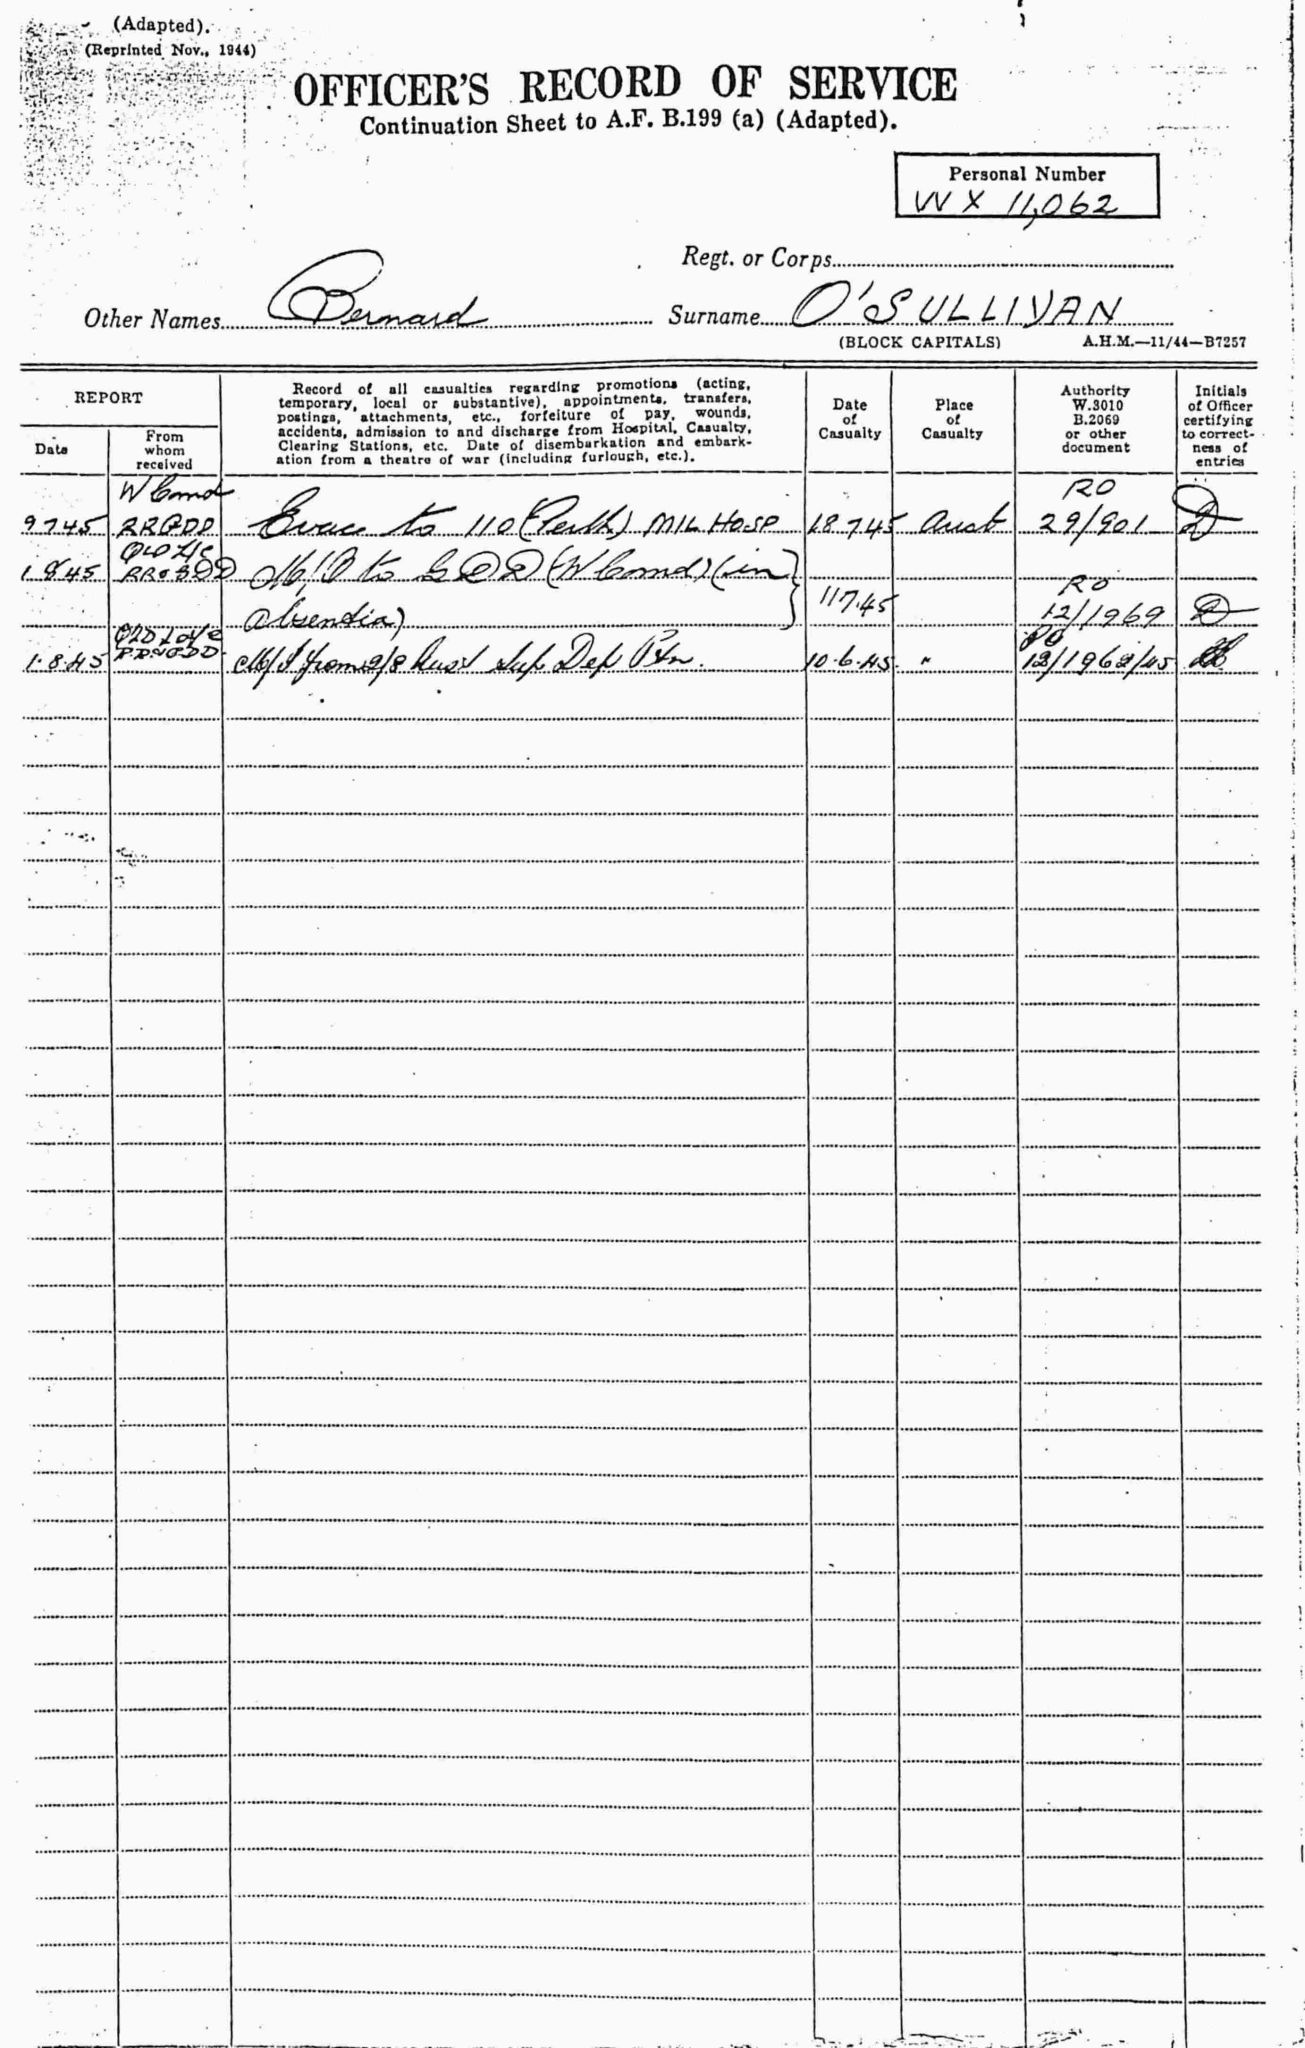 (Adapted).
(Reprinted Nov., 1944)
OFFICER'S RECORD OF SERVICE
Continuation Sheet to A.F. B.199 (a) (Adapted).
Personal Number
WX 11,062
Regt. or Corps
Other Names Bernard Surname O'SULLIVAN
(BLOCK CAPITALS) A.H.M.—11/44—B7257
REPORT
Date
From
whom
received
Record of all casualties regarding promotions (acting,
temporary, local or substantive), appointments, transfers,
postings, attachments, etc., forfeiture of pay, wounds,
accidents, admission to and discharge from Hospital, Casualty,
Clearing Stations, etc. Date of disembarkation and embark-
ation from a theatre of war (including furlough, etc.).
Date
of
Casualty
Place
of
Casualty
Authority
W.3010
B.2069
or other
document
Initials
of Officer
certifying
to correct-
ness of
entries
W Comd RO
9.7.45 Evac to 110 (Perth) MIL HOSP 18.7.45 Aust 29/901
1.8.45 M/O to GDD (W Comd) (in RO
absentia) 11.7.45 12/1969
1.8.45 from 2/8 Aust Sup Dep Pln. 10.6.45 "